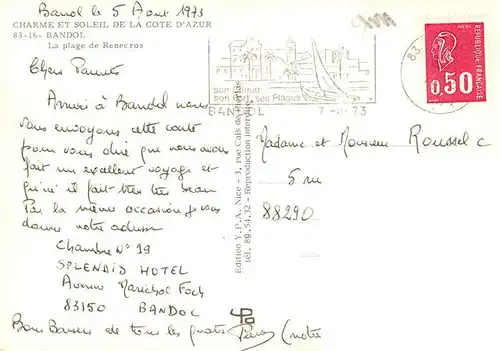 Bandol le 5 Aout 1973
CHARME ET SOLEIL DE LA COTE D'AZUR
83-16- BANDOL
La plage de Renecros
Chers Parents
Arrivés à Bandol nous
vous envoyons cette carte
pour vous dire que nous avons
fait un excellent voyage et
qu'ici il fait très très beau
Par la même occasion je vous
donne notre adresse
Chambre N° 19
SPLENDID HOTEL
Avenue Maréchal Foch
83150 BANDOL
Bons Baisers de tous les quatre
Edition Y.P.A. Nice - 3, rue Caïs de Pierlas
tél. 89.54.32 - Reproduction interdite
son
son Port, ses Plages
BANDOL 7-8-73
83
REPUBLIQUE FRANCAISE
0,50
Madame et Monsieur Roussel C
5 rue
88290